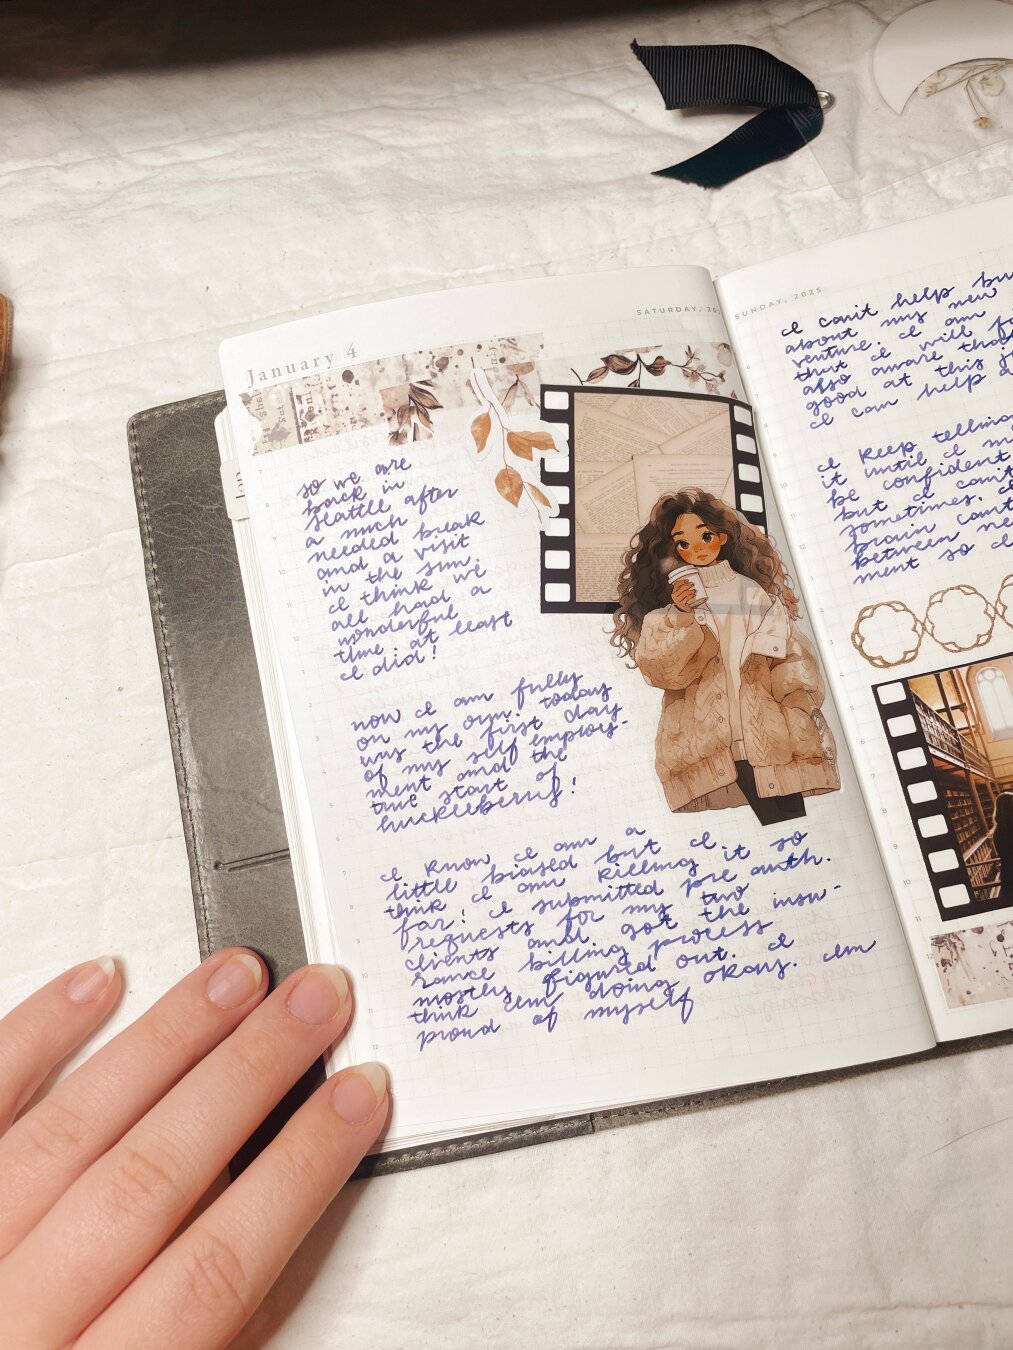 January 4
SATURDAY, 20
so we are
back in
seattle after
a much
needed break
and a visit
in the sun.
I think we
all had a
wonderful
time. at least
I did!
now I am fully
on my own! today
was the first day
of my self employ-
ment and the
true start of
huckleberry!
I know I am a
little biased but I
think I am killing it so
far! I submitted pre auth.
requests for my two
clients and got the insu-
rance billing process
mostly figured out. I
think I'm doing okay. I'm
proud of myself
SUNDAY, 2025
I can't help but
about my new
venture. I am
that I will
also aware that
good at this
I can help
I keep telling
it until I
be confident
but I can't
sometimes.
brain can't
between
ment so I